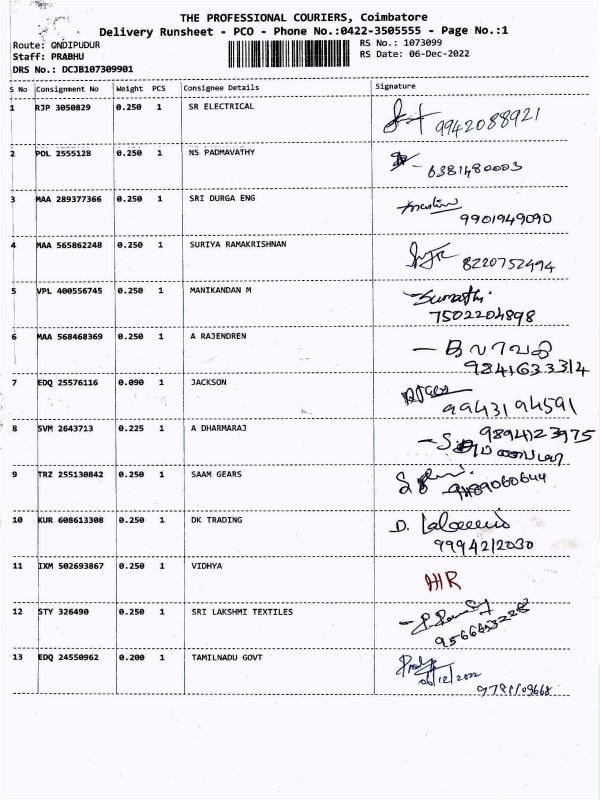 THE PROFESSIONAL COURIERS, Coimbatore
Delivery Runsheet - PCO - Phone No.:0422-3505555 - Page No.:1
Route: GNDIPUDUR
RS No.: 1073099
Staff: PRABHU
RS Date: 06-Dec-2022
DRS No.: DCJB107309901
S No Consignment No Weight PCS Consignee Details Signature
1 RJP 3050829 0.250 1 SR ELECTRICAL
9942088921
2 POL 2555128 0.250 1 NS PADMAVATHY
6381480003
3 MAA 289377366 0.250 1 SRI DURGA ENG
9901949090
4 MAA 565862248 0.250 1 SURIYA RAMAKRISHNAN
8220752494
5 VPL 400556745 0.250 1 MANIKANDAN M
Sumathi
7502204898
6 MAA 568468369 0.250 1 A RAJENDREN
9841633314
7 EDQ 25576116 0.090 1 JACKSON
9943194591
8 SVM 2643713 0.225 1 A DHARMARAJ
9894123975
9 TRZ 255130842 0.250 1 SAAM GEARS
9489060644
10 KUR 608613308 0.250 1 DK TRADING
9994212030
11 IXM 502693867 0.250 1 VIDHYA
HR
12 STY 326490 0.250 1 SRI LAKSHMI TEXTILES
13 EDQ 24550962 0.200 1 TAMILNADU GOVT
06/12/2022